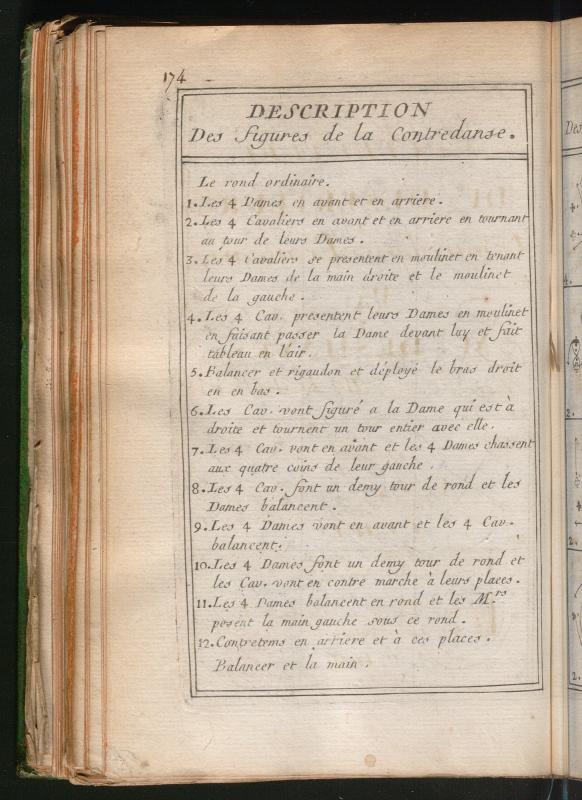 174
DESCRIPTION
Des figures de la Contredanse.
Le rond ordinaire.
1. Les 4 Dames en avant et en arriere.
2. Les 4 Cavaliers en avant et en arriere en tournant
au tour de leurs Dames.
3. Les 4 Cavaliers se presentent en moulinet en tenant
leurs Dames de la main droite et le moulinet
de la gauche.
4. Les 4 Cav. presentent leurs Dames en moulinet
en faisant passer la Dame devant luy et fait
tableau en l'air.
5. Balancer et rigaudon et déployé le bras droit
en en bas.
6. Les Cav. vont figuré a la Dame qui est à
droite et tournent un tour entier avec elle.
7. Les 4 Cav. vont en avant et les 4 Dames chassent
aux quatre coins de leur gauche.
8. Les 4 Cav. font un demy tour de rond et les
Dames balancent.
9. Les 4 Dames vont en avant et les 4 Cav.
balancent.
10. Les 4 Dames font un demy tour de rond et
les Cav. vont en contre marche à leurs places.
11. Les 4 Dames balancent en rond et les M.rs
posent la main gauche sous ce rond.
12. Contretems en arriere et à ces places.
Balancer et la main.
Des
4.
1.
2.
2.